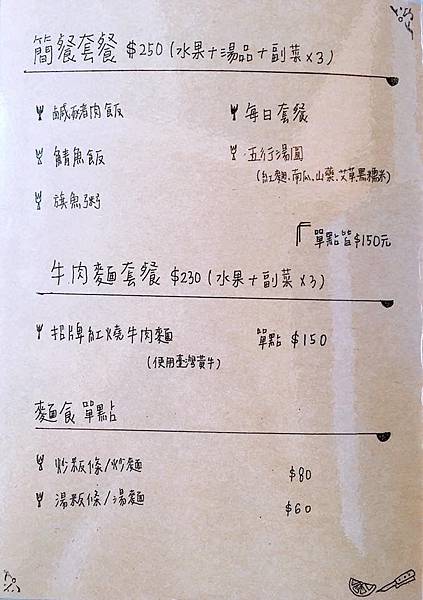 簡餐套餐 $250(水果+湯品+副菜x3)
鹹豬肉飯
每日套餐
鯖魚飯
五行湯圓
(紅麴、南瓜、山藥、艾草、黑糯米)
旗魚粥
單點皆$150元
牛肉麵套餐 $230(水果+副菜x3)
招牌紅燒牛肉麵 單點 $150
(使用臺灣黃牛)
麵食單點
炒粄條/炒麵 $80
湯粄條/湯麵 $60